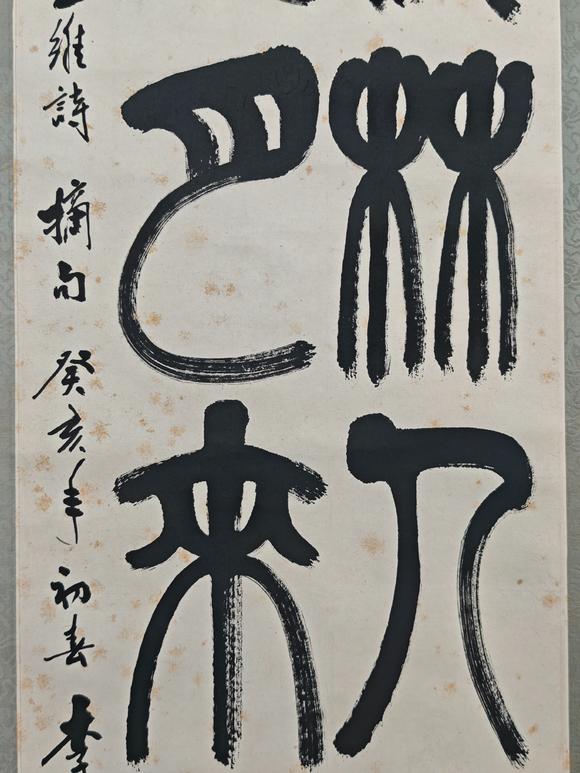 林人
月來
維詩 摘句 癸亥年 初春 李